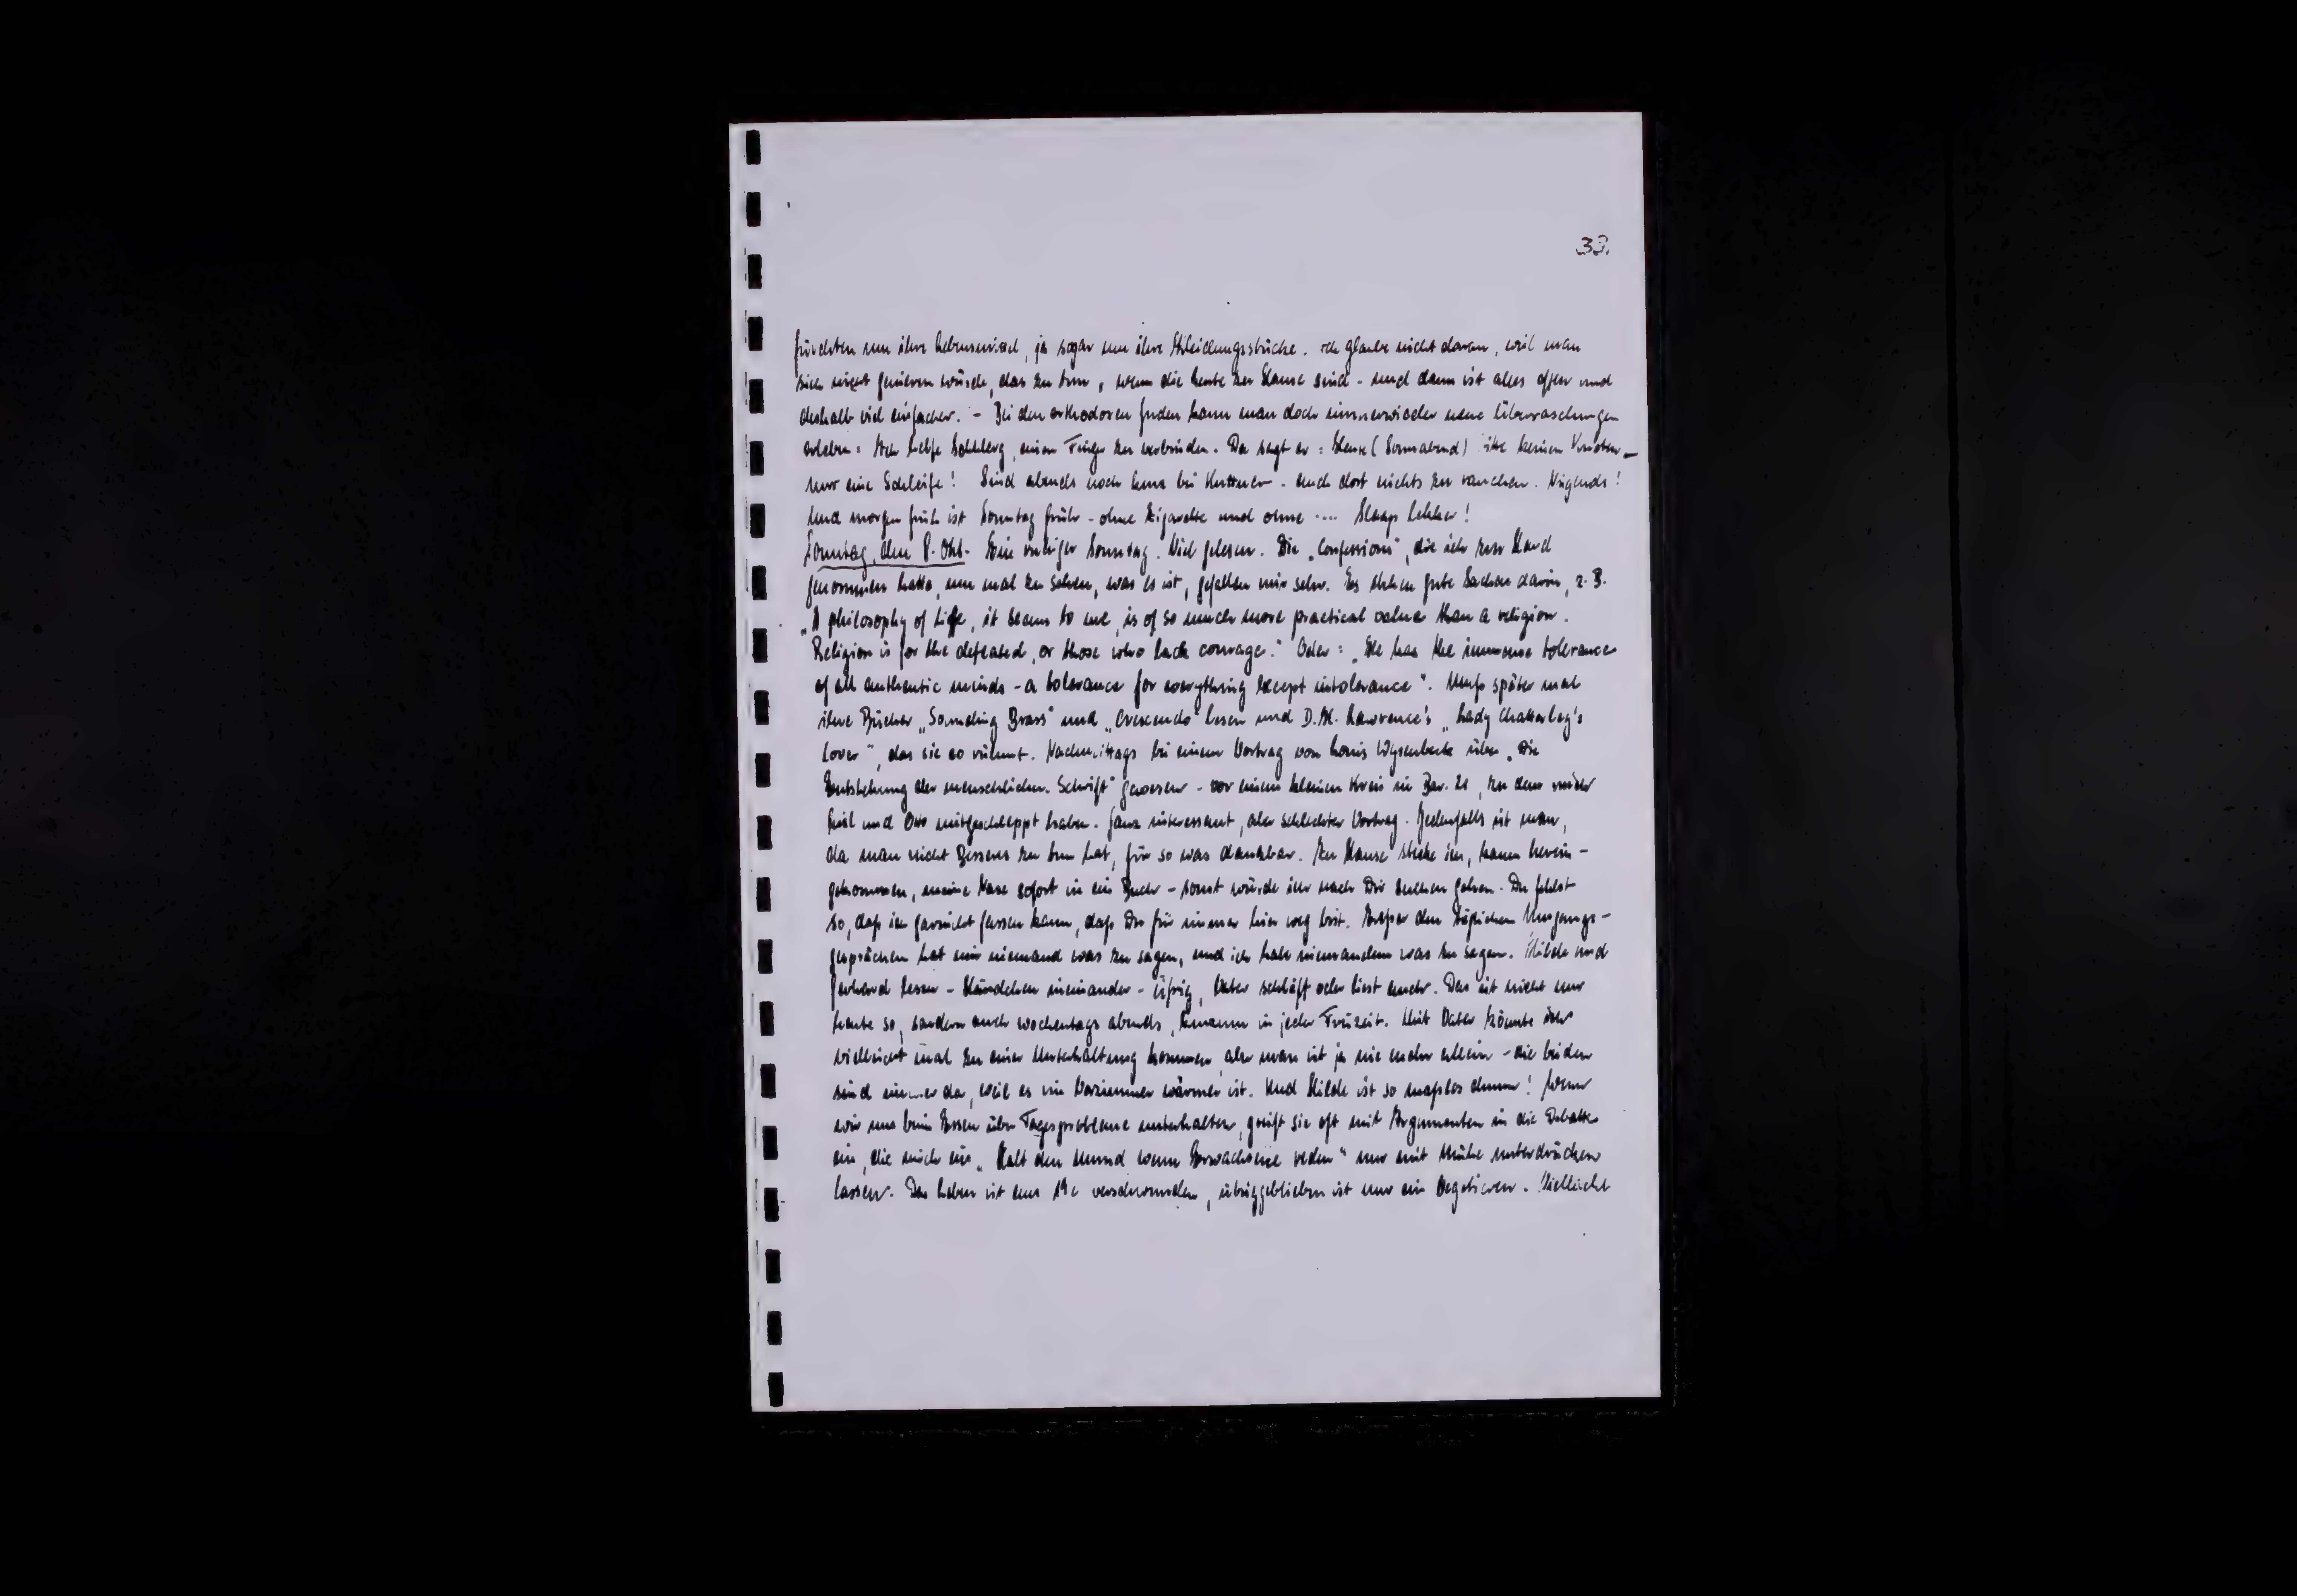 33.
fürchten um ihre Lebensmittel, ja sogar um ihre Kleidungsstücke. Ich glaube nicht daran, weil man
sich nicht genieren würde, das zu tun, wenn die Leute zu Hause sind - und dann ist alles offen und
deshalb viel einfacher. - Bei den orthodoxen Juden kann man doch immerwieder neue Überraschungen
erleben: Ich helfe Schlberg, einen Finger zu verbinden. Da sagt er: Heute (Sonnabend) bitte keinen Knoten -
nur eine Schleife! Sind abends noch kurz bei Kuttner - auch dort nichts zu rauchen. Nirgends!
Und morgen früh ist Sonntag früh - ohne Zigarette und ohne .... Slaap lekker!
Sonntag, den 8. Okt. Ein ruhiger Sonntag. Viel gelesen. Die „Confessions", die ich zur Hand
genommen hatte, um mal zu sehen, was es ist, gefallen mir sehr. Es stehen gute Sachen darin, z.B.
„A philosophy of life, it seems to me, is of so much more practical value than a religion.
Religion is for the defeated, or those who lack courage." Oder: „He has the immense tolerance
of all authentic minds - a tolerance for everything except intolerance". Muß später mal
ihre Bücher „Sounding Brass" und „Crescendo" lesen und D.H. Lawrence's „Lady Chatterley's
Lover", das sie so rühmt. Nachmittags bei einem Vortrag von Louis über „Die
Entstehung der menschlichen Schrift" gewesen - vor einem kleinen Kreis in Bar. 21, zu dem mich
und Otto mitgeschleppt haben. Ganz interessant, aber schlechter Vortrag. Jedenfalls ist man,
da man nicht Besseres zu tun hat, für so was dankbar. Zu Hause stecke ich, kaum herein-
gekommen, meine Nase sofort in ein Buch - sonst würde ich nach Dir suchen gehen. Du fehlst
so, daß ich garnicht fassen kann, daß Du für immer hier weg bist. Außer den täglichen Umgangs-
gesprächen hat mir niemand was zu sagen, und ich habe niemandem was zu sagen. Hilde und
Gerhard lesen - Händchen ineinander - eifrig, Vater schläft oder liest auch. Das ist nicht nur
heute so, sondern auch wochentags abends, in jeder Freizeit. Mit Vater könnte ich
vielleicht mal zu einer Unterhaltung kommen, aber man ist ja nie mehr allein - die beiden
sind immer da, weil es im Vorzimmer wärmer ist. Und Hilde ist so maßlos dumm! Wenn
wir uns beim Essen über Tagesprobleme unterhalten, greift sie oft mit Argumenten in die Debatte
ein, die mich ein „Halt den Mund wenn Erwachsene reden" nur mit Mühe unterdrücken
lassen. Das Leben ist aus verschwunden, übriggeblieben ist nur ein Vegetieren. Vielleicht